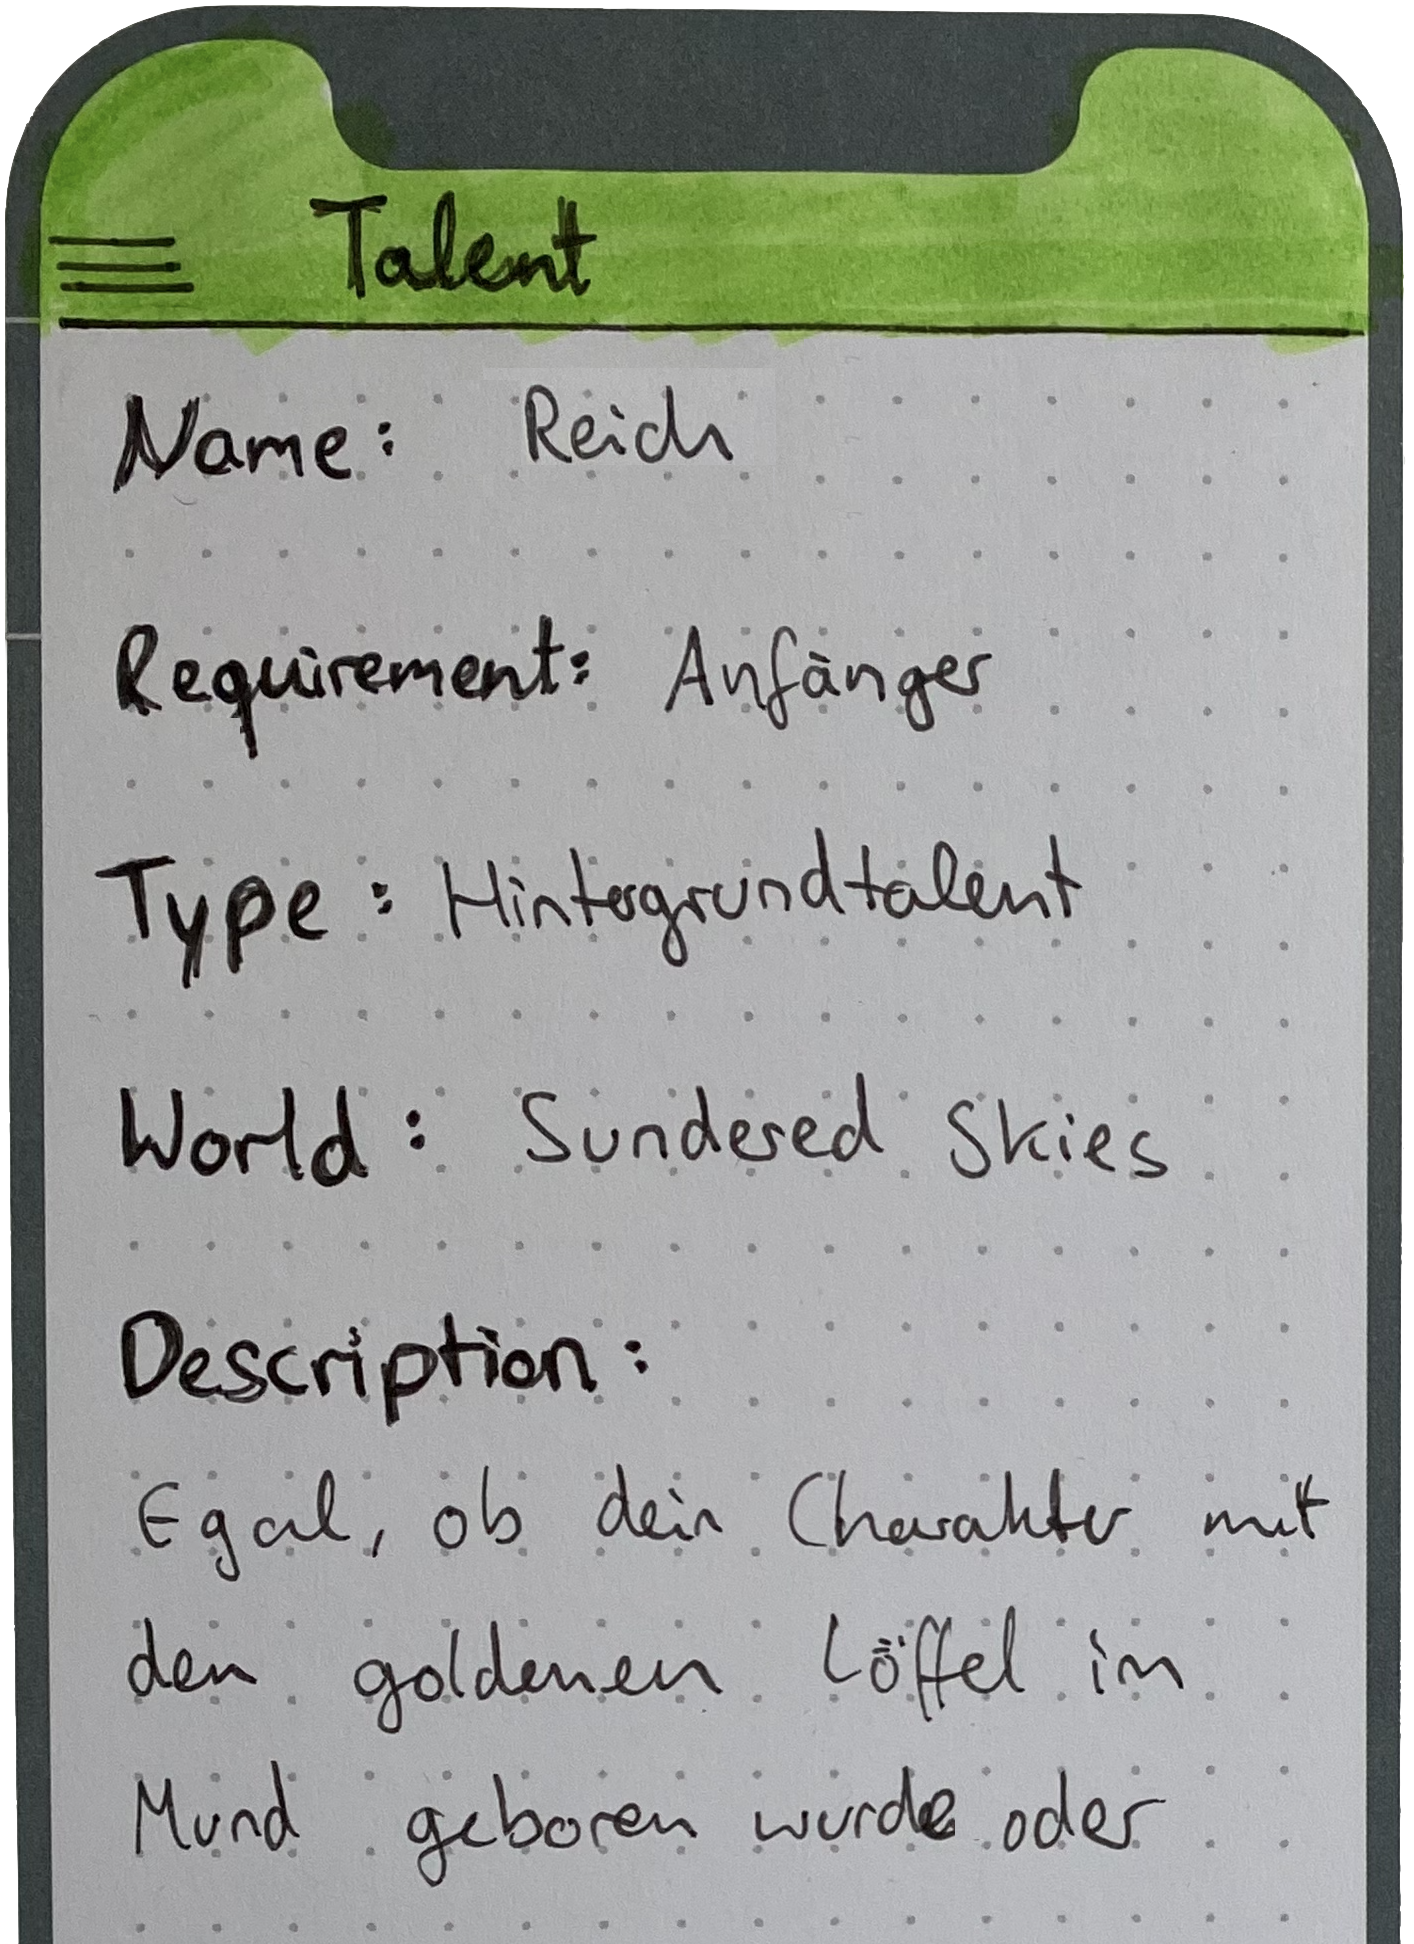 Talent
Name: Reich
Requirement: Anfänger
Type: Hintergrundtalent
World: Sundered Skies
Description:
Egal, ob dein Charakter mit
den goldenen Löffel im
Mund geboren wurde oder